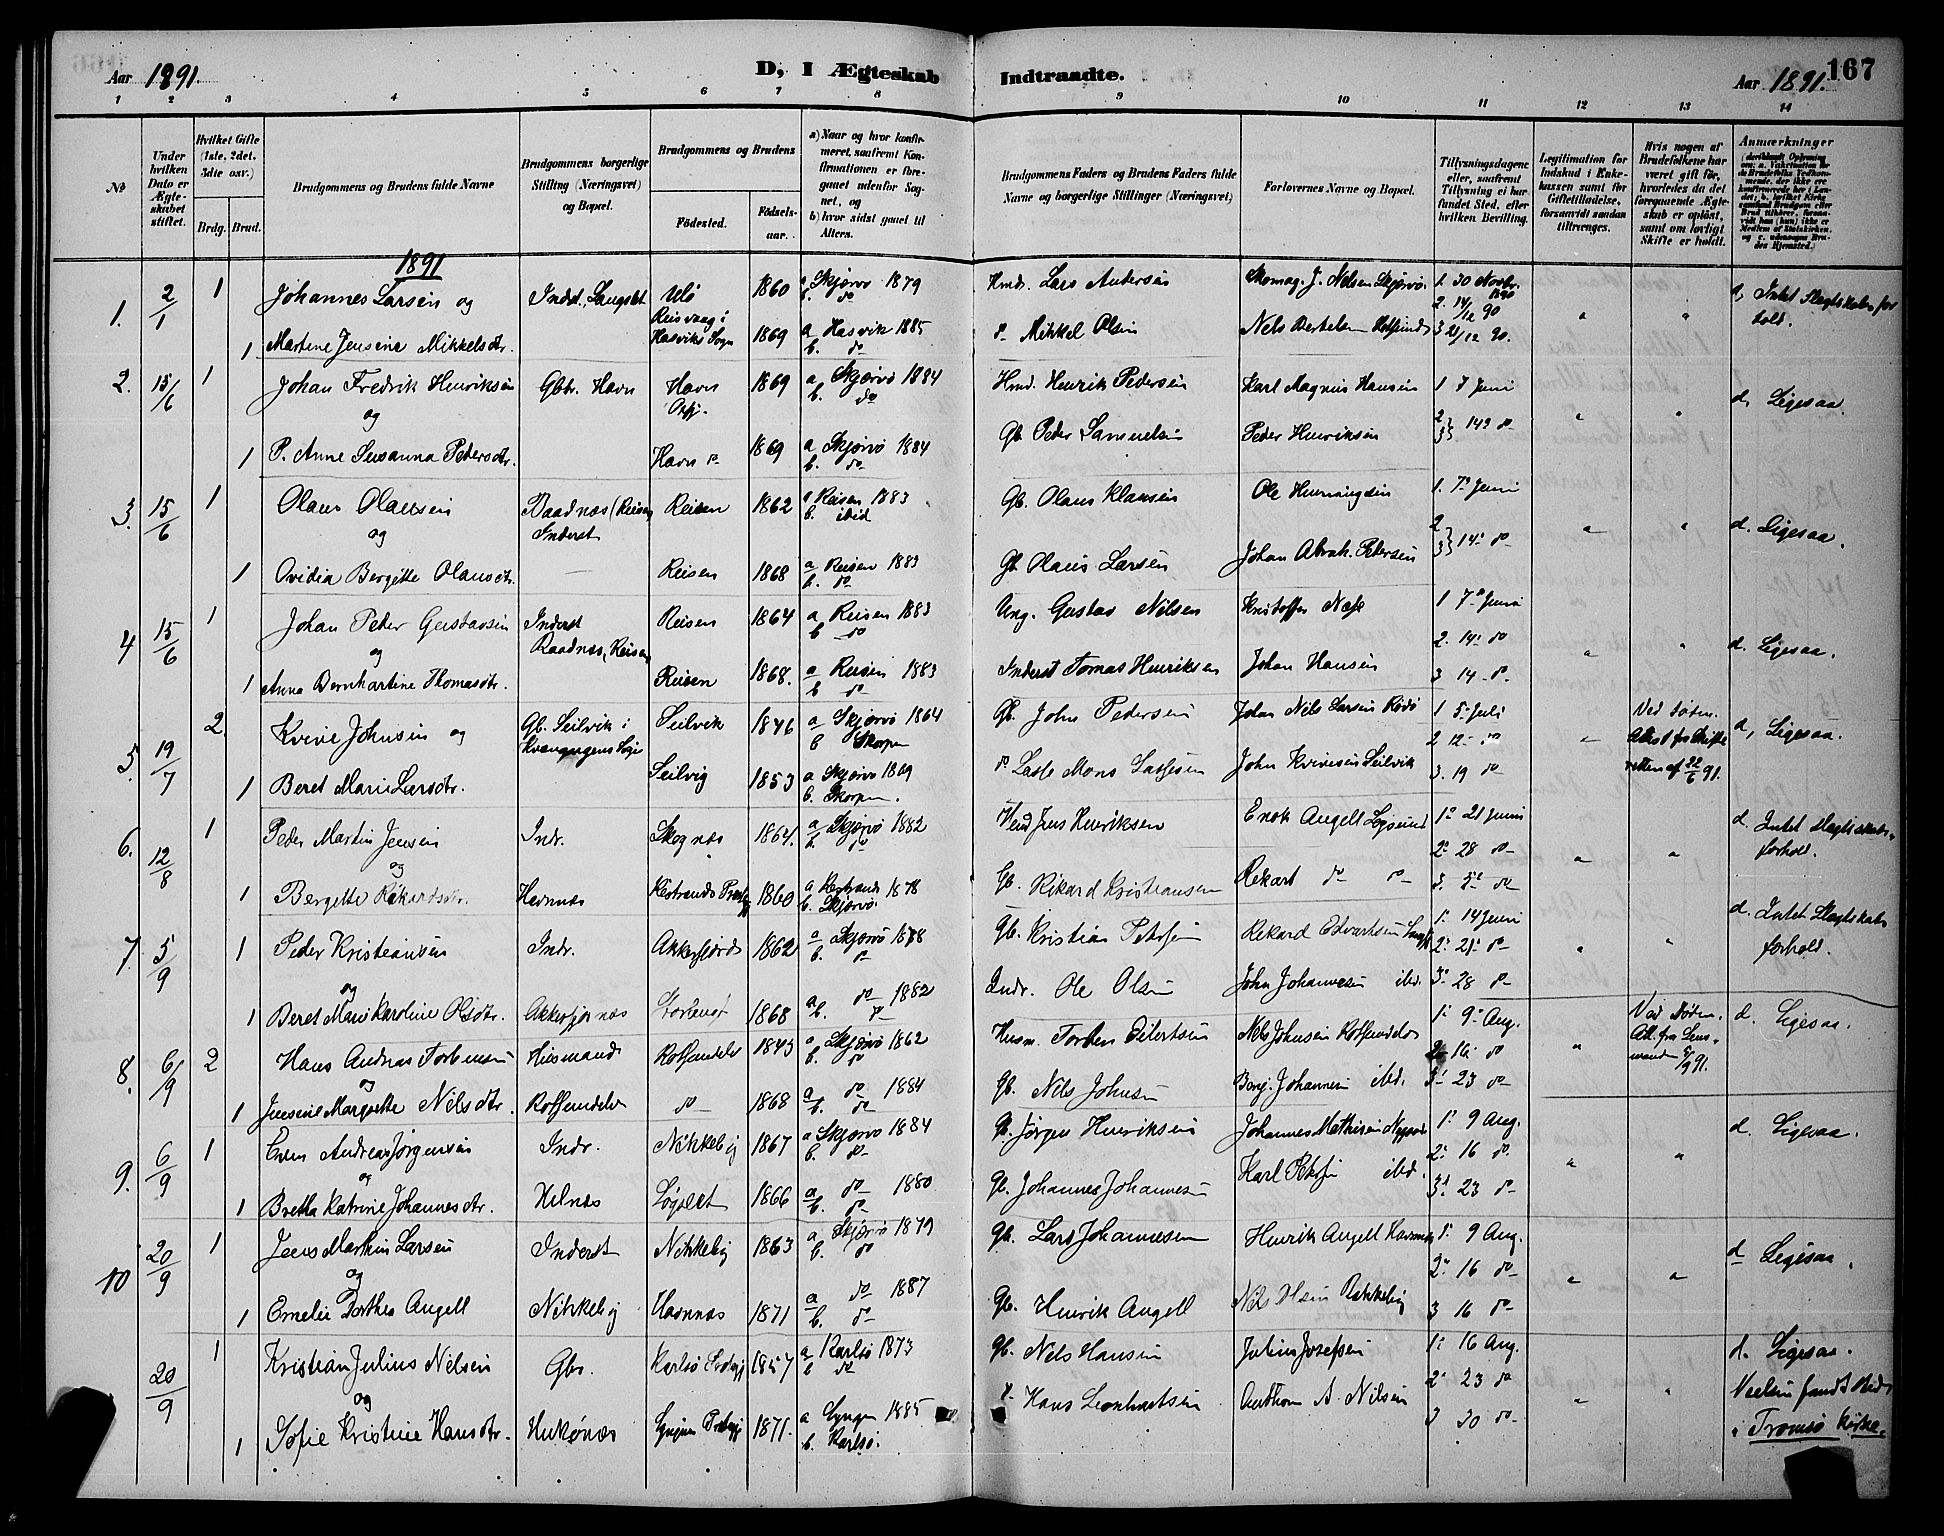 Aar 1891.
D, I Ægteskab
Indtraadte.
Aar 1891.
167
1 2 3 4 5 6 7 8 9 10 11 12 13 14
No
Under hvilken Dato er Ægteskabet stiftet.
Hvilket Gifte (1ste, 2det, 3die osv.)
Brdg. Brud.
Brudgommens og Brudens fulde Navne
Brudgommens borgerlige Stilling (Næringsvei) og Bopæl.
Brudgommens og Brudens
Fødested.
Fødselsaar.
a) Naar og hvor konfirmeret, saafremt Konfirmationen er foregaaet udenfor Sognet, og
b) hvor sidst gaaet til Alters.
Brudgommens Faders og Brudens Faders fulde Navne og borgerlige Stillinger (Næringsvei)
Forlovernes Navne og Bopæl.
Tillysningsdagene eller, saafremt Tillysning ei har fundet Sted, efter hvilken Bevilling.
Legitimation for Indskud i Enkekassen samt for Giftetilladelse, forsaavidt saadan tiltrænges.
Hvis nogen af Brudefolkene har været gift før, hvorledes da det foregaaende Ægteskab er opløst, samt om lovligt Skifte er holdt.
Anmærkninger
1891
1. 2/1 1 Johannes Larsen og Indst. Langslet Ulö 1860 a Skjærvö 1879 b. do Hmd. Lars Andersen Skomag. J. Nelsen Skjærvö. 1. 30 Novbr. 1890 2. 14/12 90 " " d, Intet Slægtskabsforhold.
1 Martine Jensine Mikkelsdtr. Reisvaag i Hasviks Sogn 1869 a Hasvik 1885 b. do do Mikkel Olsen Nels Bertelsen Rotsund 3 21/12 90.
2. 15/6 1 Johan Fredrik Henriksen og Gbr. Havn Havn 1869 a, Skjærvö 1884 b. do Hmd. Henrik Pedersen Karl Magnus Hansen 1 7 Juni " " d, Ligesaa.
1 P. Anne Susanna Pedersdtr. Havn do 1869 a Skjærvö 1884 b. do Gb. Peder Samuelsen Peder Henriksen 2 3} 14de do
3. 15/6 1 Olaus Olausen og Baadnæs (Reisen) Inderst Reisen 1862 a Reisen 1883 b. ibid Gb. Olaus Klausen Ole Henningsen 1. 7de Juni " " d. Ligesaa.
1 Ovidia Bergitte Olausdtr. — Reisen 1868 a Reisen 1883 b. do Gb Olaus Larsen Johan Abrah. Petersen 2 3} 14. do
4 15/6 1 Johan Peder Gustavsen og Inderst Baadnæs, Reisen Reisen 1864 a Reisen 1883 b do Ung. Gustav Nilsen Kristoffer Næss 1 7de Juni 2. 14. do " " d. Ligesaa.
1 Anna Bernhartine Thomasdtr. Reisen 1868. a Reisen 1883 b do Inderst Tomas Henriksen Johan Hansen 3 14 do.
5. 19/7 2. Kvive Johnsen og Gb. Seilvik i Kvænangens Sogn Seilvik 1846 a Skjærvö 1864 b Skorpen Gb. John Pedersen Johan Nils Larsen Rödö 1 5. Juli 2 12. do " Ved Döden. Attest fra Skifteretten af 22/6 91. d, Ligesaa.
1 Beret Marie Larsdtr. Seilvig 1853 a Skjærvö 1869 b. Skorpen. do Lasse Mons Lassesen John Kvivesen Seilvik 3. 19 do
6. 12/8 1 Peder Martin Jensen og Indr. Skognæs 1864. a Skjærvö 1882 b. do Hmd Jens Henriksen Enok Angell 1. 21 Juni 2. 28 do " " d. Intet Slægtskabsforhold.
1 Bergitte Rikardsdtr. Havnnæs 1860 b. Skjærvö. 1878 Gb. Rikard Kristeansen Rikart do do 3. 5. do
7. 5/9 1 Peder Kristeansen og Indr. Akkarfjord 1862 a Skjærvö 1878 b. do Gb. Kristian Petersen Rikard Edvartsen 1. 14 Juni 2. 21. do " " d. Intet Slægtskabsforhold.
1 Beret Marie Karoline Olsdtr. 1868 a. do 1882 b. do Indr. Ole Olsen John Johannesen ibd. 3. 28 do
8. 6/9 2 Hans Andreas Torbensen og Husmand Rotsundelv 1843 a Skjærvö 1862 b. do Husm. Torben Eilertsen Nils Johnsen Rotsundelv 1. 9. Aug. 2. 16. do " Ved Döden. Att. fra Lensmanden 5/9 91. d. Ligesaa.
1 Jensine Margrethe Nilsdtr. Rotsundelv do 1868 a do 1884 b. do Gb. Nils Johnsen Benj. Johannesen ibd. 3. 23 do
9. 6/9 1 Even Andreas Jörgensen og Indr. Nikkeby 1867 a Skjærvö 1884 b. do Gb. Jörgen Henriksen Johannes Mathisen 1. 9 Aug. 2. 16 do. " " d. Ligesaa.
1 Bretha Katrine Johannesdtr. Helnæs Lögslet 1866 a. do 1880 b. do Gb. Johannes Johannesen Karl Petersen ibd. 3. 23 do
10 20/9 1 Jens Martin Larsen og Inderst Nikkeby 1863 a Skjærvö 1879 b. do Gb. Lars Johannesen Henrik Angell Havnnæs 1. 9 Aug. 2. 16 do " " d Ligesaa.
1 Emelie Dorthea Angell Nikkeby Havnnæs 1871 a do 1887 b. do Gb. Henrik Angell Nils Olsen 3 16 do
20/9 1 Kristian Julius Nilsen og Gbr. Karlsö Prstegj 1857 a Karlsö 1873 b do Gb. Nels Hansen Julius Josefsen 1. 16 Aug. 2. 23 do " " d. Ligesaa. Vielsen fandt Sted i Tromsö Kirke.
1 Sofie Kristine Hansdtr. Hukönæs Lyngen Prstegj 1871. a Lyngen 1885 b. Karlsö. do Hans Leonhartsen Anthon A. Nilsen 3 30 do